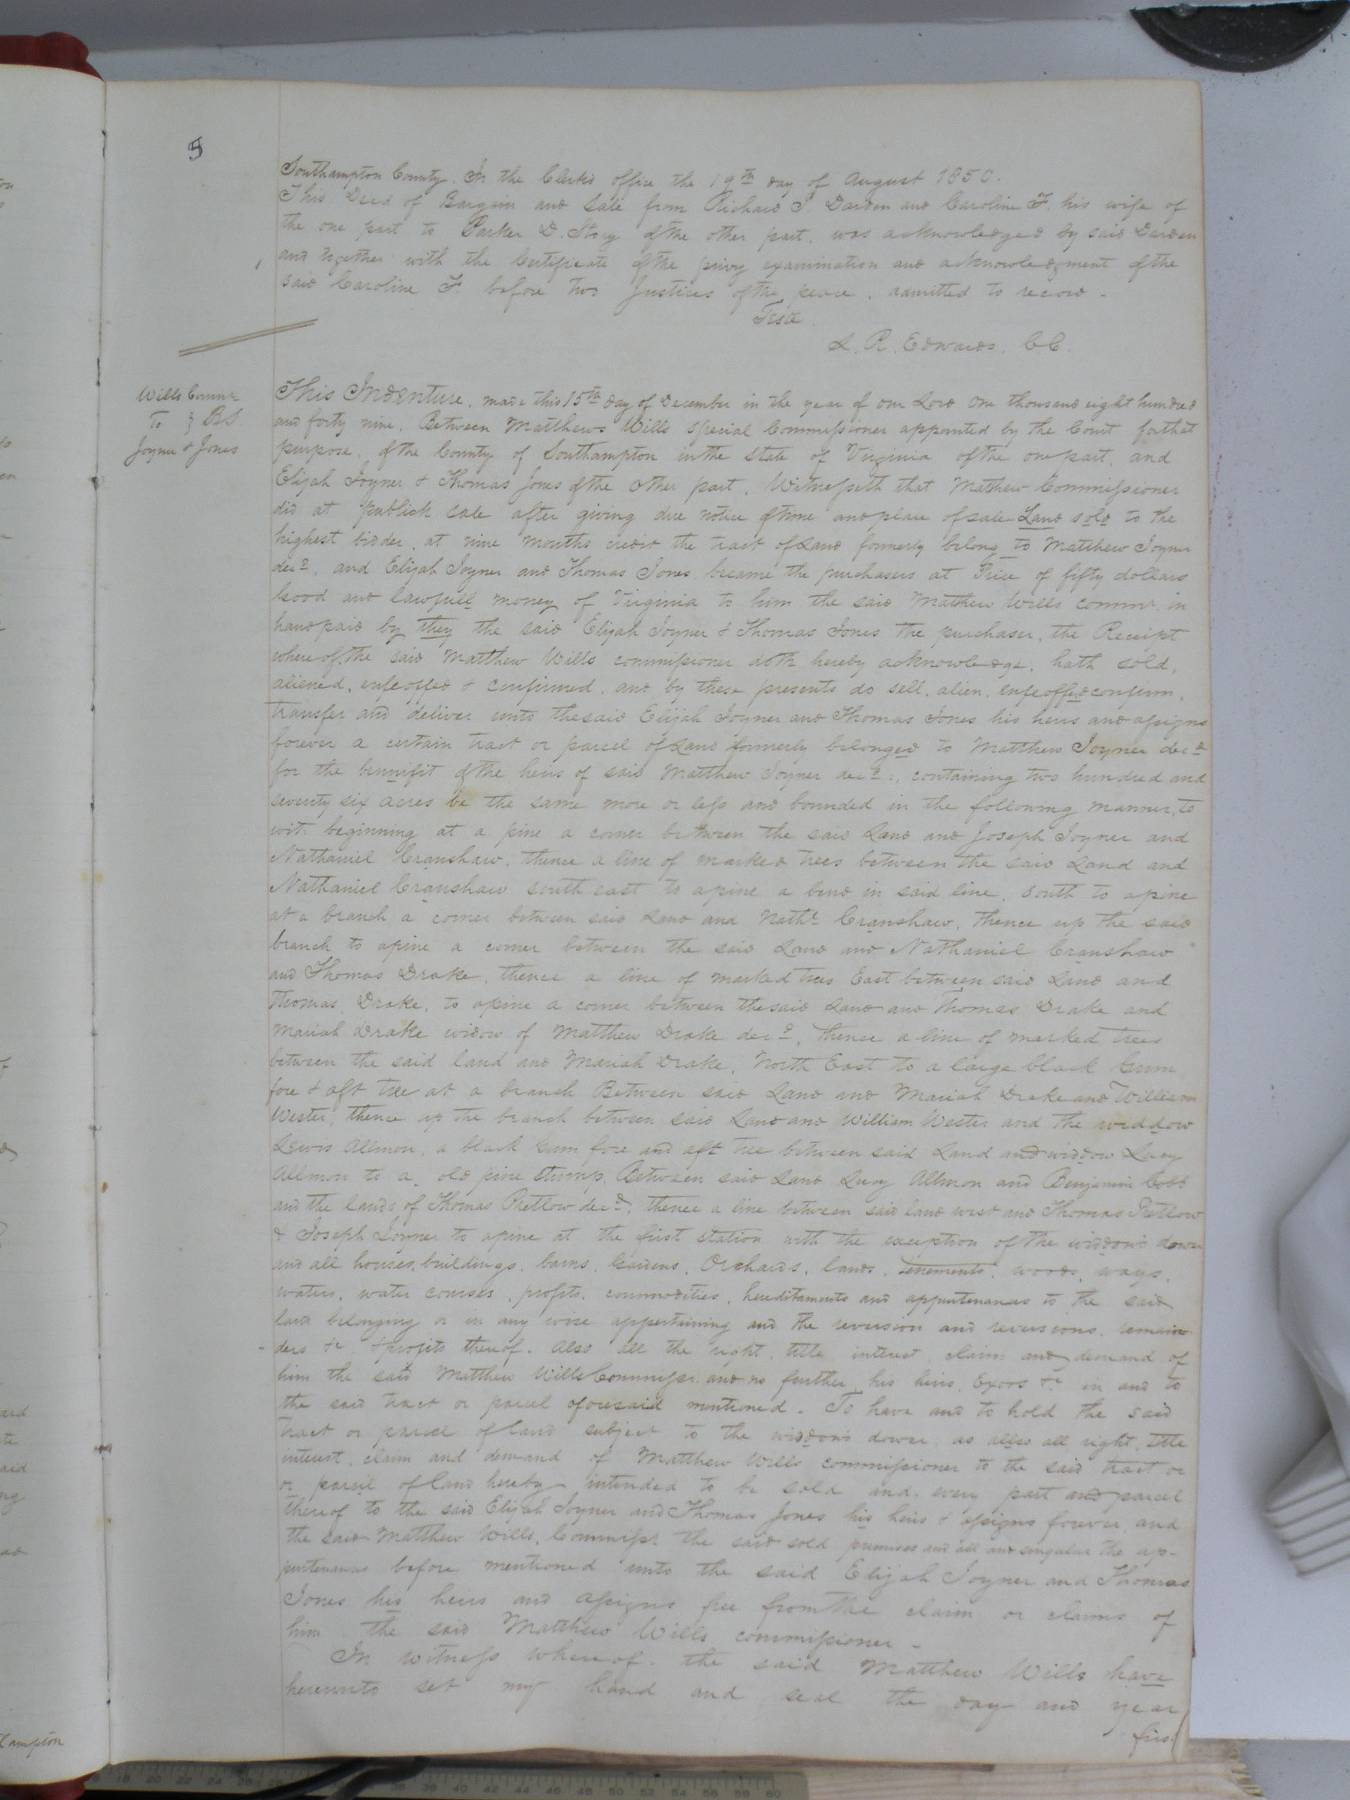 5
Southampton County. In the Clerks office the 19th day of August 1850.
This Deed of Bargain and Sale from Richard T. Darden and Caroline F. his wife of
the one part to Parker D. Story of the other part, was acknowledged by said Darden
and together with the Certificate of the privy examination and acknowledgment of the
said Caroline F. before two Justices of the peace, admitted to record -
Teste
L. R. Edwards, CC.
Wills Commr
To } BS
Joyner & Jones
This Indenture, made this 15th day of December in the year of our Lord one thousand eight hundred
and forty nine, Between Matthew Wills Special Commissioner appointed by the Court for that
purpose, of the County of Southampton in the State of Virginia of the one part, and
Elijah Joyner & Thomas Jones of the other part, Witnesseth that Mathew Commissioner
did at publick sale after giving due notice of time and place of sale Land sold to the
highest bidder, at nine months credit the tract of Land formerly belong to Matthew Joyner
decd, and Elijah Joyner and Thomas Jones became the purchasers at Price of fifty dollars
Good and lawfull money of Virginia to him the said Matthew Wills commr. in
hand paid by they the said Elijah Joyner & Thomas Jones the purchaser, the Receipt
where of, the said Matthew Wills commissioner doth hereby acknowledge, hath sold,
aliened, enfeoffed & confirmed, and by these presents do sell, alien, enfeoffed confirm,
transfer and deliver unto the said Elijah Joyner and Thomas Jones his heirs and assigns
forever a certain tract or parcel of Land formerly belonged to Matthew Joyner decd
for the bennifit of the heirs of said Matthew Joyner decd., containing two hundred and
seventy six acres be the same more or less and bounded in the following manner, to
wit. beginning at a pine a corner between the said Land and Joseph Joyner and
Nathaniel Cranshaw, thence a line of marked trees between the said Land and
Nathaniel Cranshaw south east to a pine a bend in said line, South to a pine
at a branch a corner between said Land and Nathl. Cranshaw, thence up the said
branch to a pine a corner between the said Land and Nathaniel Cranshaw
and Thomas Drake, thence a line of marked trees East between said Land and
Thomas Drake, to a pine a corner between the said Land and Thomas Drake and
Mariah Drake widow of Matthew Drake decd, thence a line of marked trees
between the said land and Mariah Drake, North East to a large black Gum
fore & aft tree at a branch Between said Land and Mariah Drake and William
Wester, thence up the branch between said Land and William Wester and the widdow
Lewis Allmon, a black Gum fore and aft tree between said Land and widow Lucy
Allmon to a old pine stump, Between said Land Lucy Allmon and Benjamin Cobb
and the lands of Thomas Pretlow decd, thence a line between said land west and Thomas Pretlow
& Joseph Joyner to a pine at the first station with the exception of the widdow's dower
and all houses, buildings, barns, Gardens, Orchards, lands, tenements, woods, ways,
waters, water courses, profits, commodities, hereditaments and appurtenances to the said
land belonging or in any wise appertaining and the reversion and reversions, remain
ders &c & profits thereof. Also all the right, title, interest, claim and demand of
him the said Matthew Wills Commissr. and no further, his heirs, Exors &c in and to
the said tract or parcel aforesaid mentioned. To have and to hold the said
tract or parcel of land subject to the widdow's dower, as allso all right, title
interest, claim and demand of Matthew Wills commissioner to the said tract or
or parcel of land hereby intended to be sold and every part and parcel
thereof to the said Elijah Joyner and Thomas Jones his heirs & assigns forever, and
the said Matthew Wills, Commissr the said sold premises and all and singular the ap-
purtenances before mentioned unto the said Elijah Joyner and Thomas
Jones his heirs and assigns free from the claim or claims of
him the said Matthew Wills commissioner -
In witness whereof. the said Matthew Wills have
hereunto set my hand and seal the day and year
firs
ampton